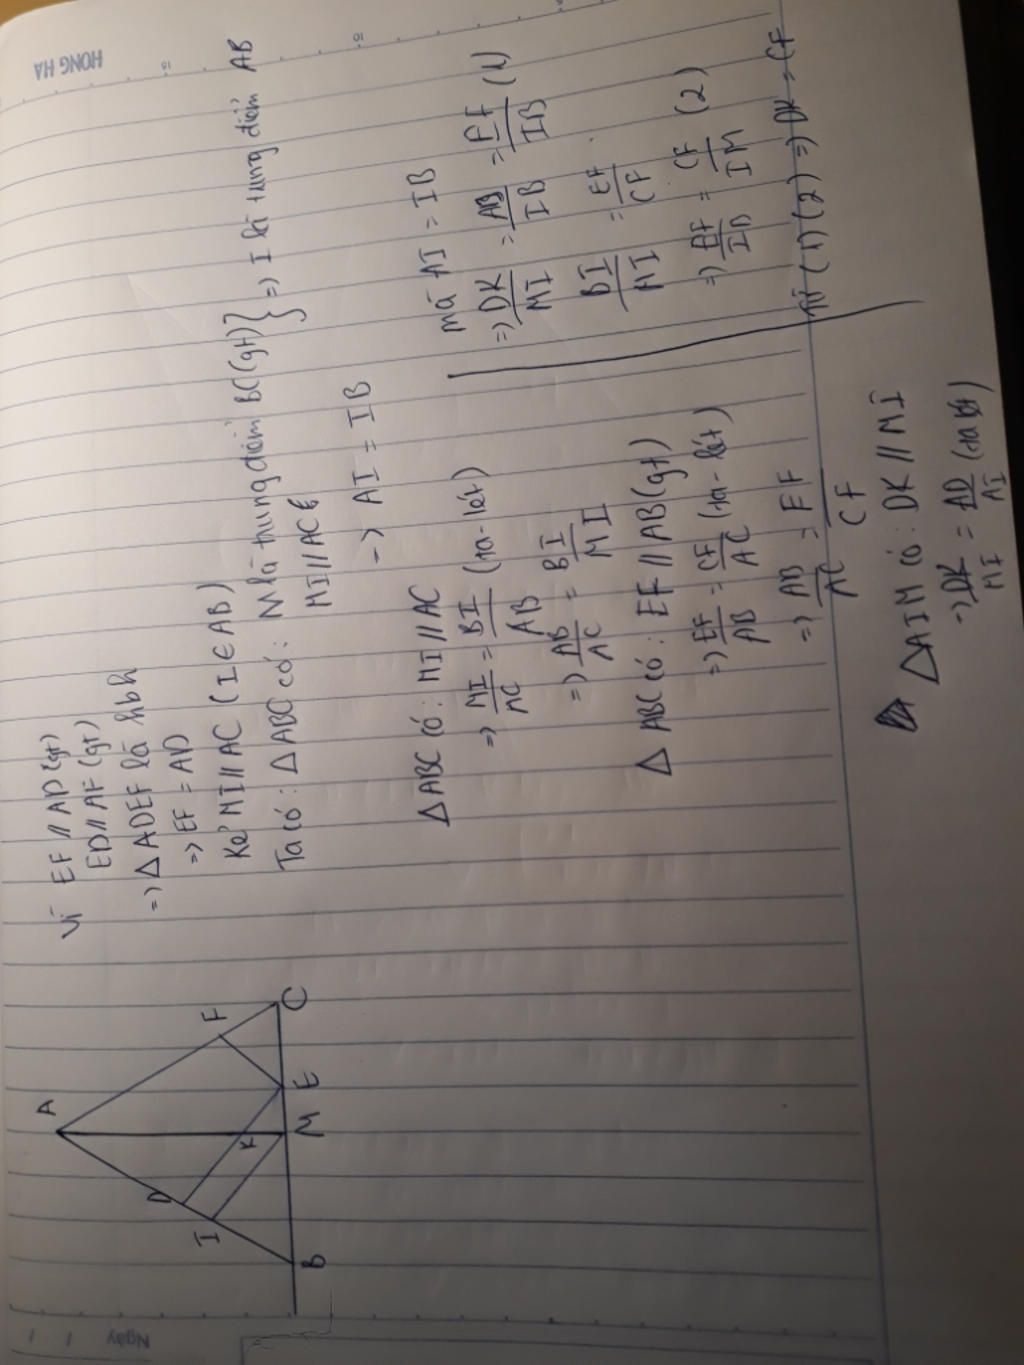 HONG HA
Ngày / /
A
D
F
I
K
B
M
E
C
Vì EF // AD (gt)
ED // AF (gt)
=> △ ADEF là hbh
=> EF = AD
Kẻ MI // AC (I ∈ AB)
Ta có: △ ABC có: M là trung điểm BC (gt) } => I là trung điểm AB
MI // AC
-> AI = IB
△ABC có: MI // AC
=> MI/AC = BI/AB (ta-lét)
=> AB/AC = BI/MI
△ ABC có: EF // AB (gt)
=> EF/AB = CF/AC (ta-lét)
=> AB/AC = EF/CF
△AIM có: DK // MI
-> DK/MI = AD/AI (ta lét)
mà AI = IB
=> DK/MI = AD/IB = EF/IB (1)
BI/MI = EF/CF
=> EF/IB = CF/IM (2)
Từ (1) (2) => DK = CF